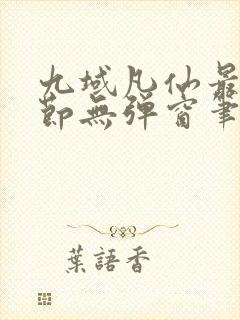 九域凡仙最
節無彈窗筆
葉語香